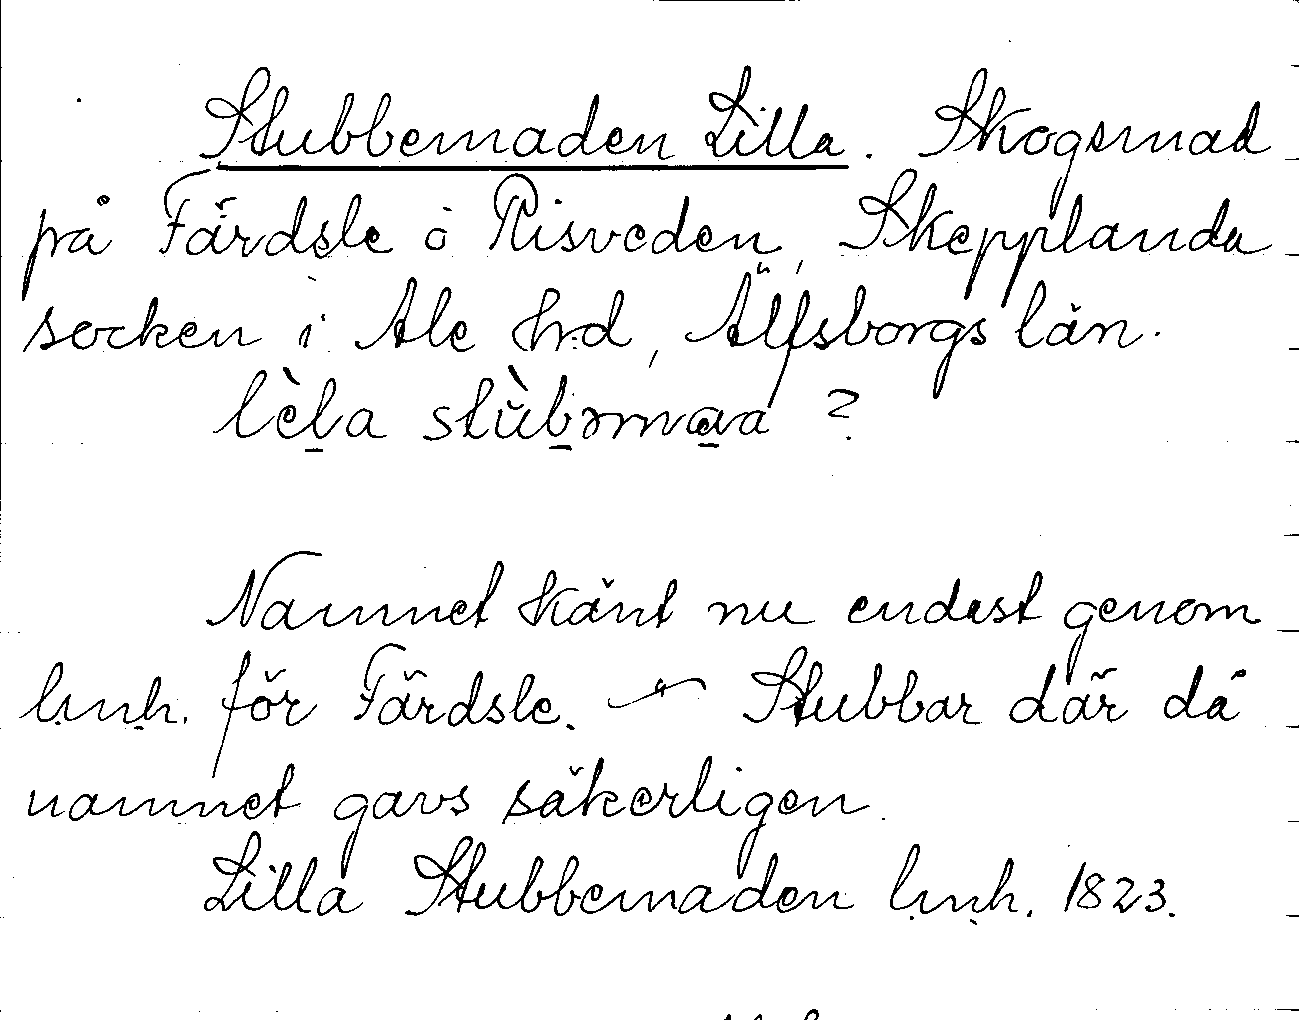 Stubbemaden Lilla. Skogsmad
på Färdsle ö Risveden, Skepplanda
socken i Ale hrd, Älfsborgs län.
lèla stùbəmaa ?
Namnet känt nu endast genom
lmh. för Färdsle. — Stubbar där då
namnet gavs säkerligen.
Lilla Stubbemaden lmh. 1823.